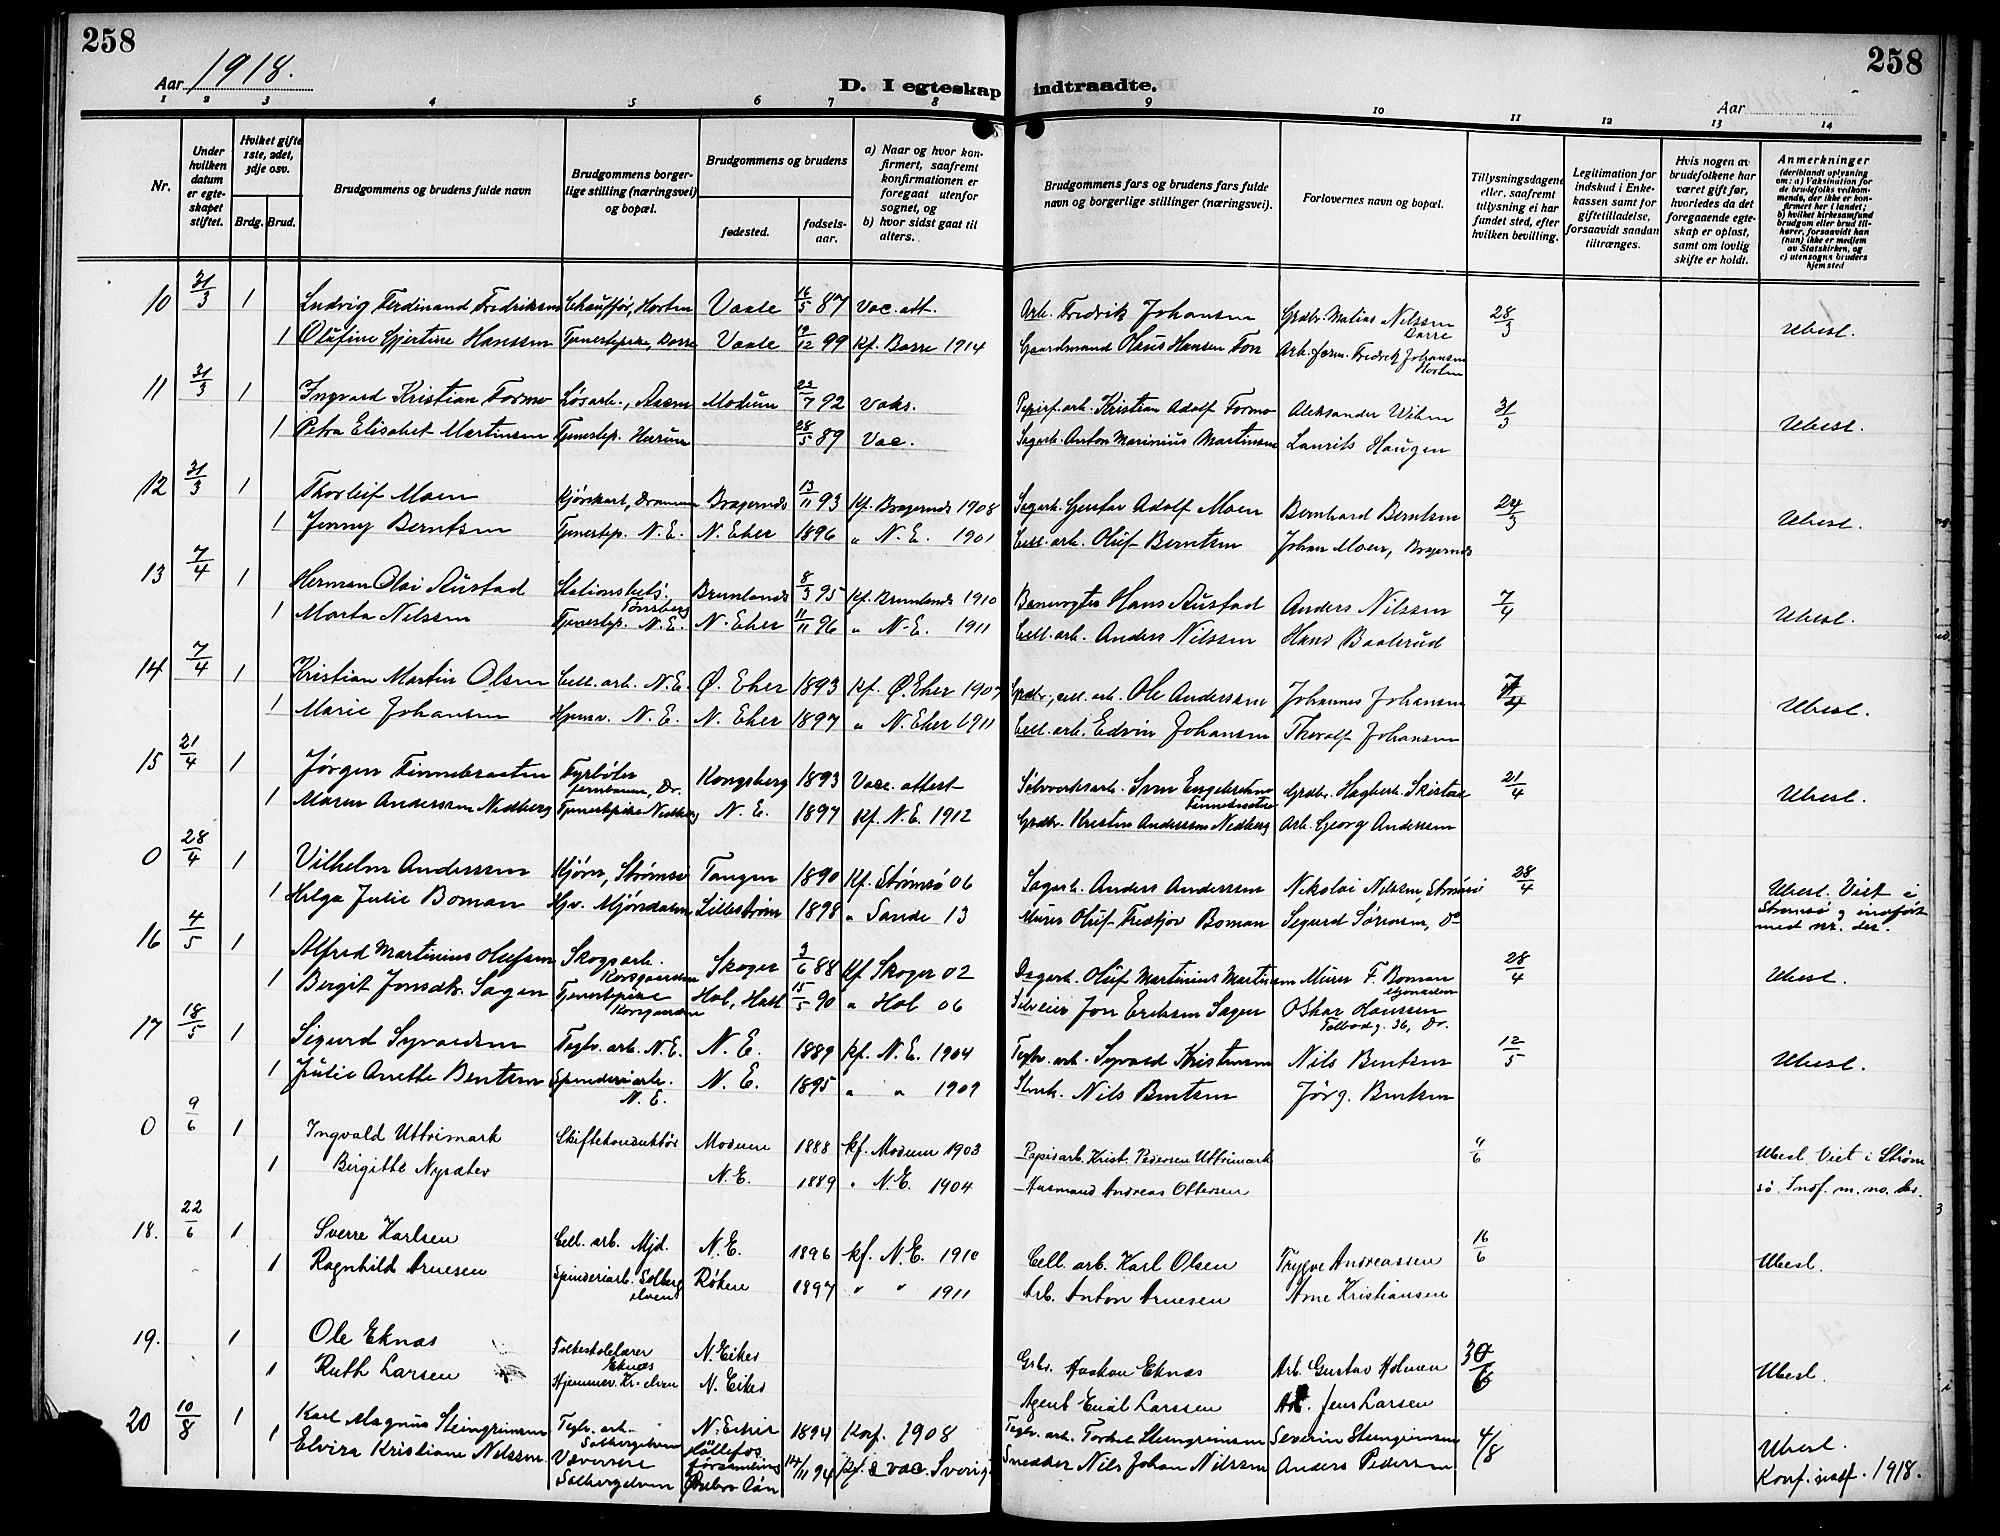 258
Aar 1918.
D. I egteskap indtraadte.
258
Aar
1 2 3 4 5 6 7 8 9 10 11 12 13 14
Nr.
Under hvilken datum er egteskapet stiftet.
Hvilket gifte 1ste, 2det, 3dje osv.
Brdg. Brud.
Brudgommens og brudens fulde navn
Brudgommens borgerlige stilling (næringsvei) og bopæl.
Brudgommens og brudens
fødested.
fødselsaar.
a) Naar og hvor konfirmert, saafremt konfirmationen er foregaat utenfor sognet, og
b) hvor sidst gaat til alters.
Brudgommens fars og brudens fars fulde navn og borgerlige stillinger (næringsvei).
Forlovernes navn og bopæl.
Tillysningsdagene eller, saafremt tillysning ei har fundet sted, efter hvilken bevilling.
Legitimation for indskud i Enkekassen samt for giftetilladelse, forsaavidt saadan tiltrænges.
Hvis nogen av brudefolkene har været gift før, hvorledes da det foregaaende egteskap er opløst, samt om lovlig skifte er holdt.
Anmerkninger
(deriblandt oplysning om: a) Vaksination for de brudefolks vedkommende, der ikke er konfirmert her i landet; b) hvilket kirkesamfund brudgom eller brud tilhører, forsaavidt han (hun) ikke er medlem av Statskirken, og c) utensogns bruders hjemsted
10 31/3 1 Ludvig Ferdinand Fredriksen Chauffør, Horten Vaale 16/5 87 Vac. att. Arb. Fredrik Johansen Grdbr. Matias Nilssen Borre 28/3 Ubesl.
1 Olufine Gjertine Hanssen Tjenestepike, Borre Vaale 19/12 99 Kf. Borre 1914 Gaardmand Olaus Hansen Arb.form. Fredrik Johansen Horten
11 31/3 1 Ingvard Kristian Formo Løsarb., Modum 23/7 92 Vaks. Papirf.arb. Kristian Adolf Formo Aleksander 31/3 Ubesl.
1 Petra Elisabet Martinsen Tjenestep. 28/5 89 Vac. Sagarb. Anton Marinius Martinsen Laurits Haugen
12 31/3 1 Thorleif Moen Kjørekarl, Drammen Bragernes 13/11 93 Kf. Bragernes 1908 Sagarb. Gustav Adolf Moen Bernhard Berntsen 24/3 Ubesl.
1 Jenny Berntsen Tjenestep. N.E. N. Eker 1896 " N.E. 1901 Cell.arb. Oluf Berntsen Johan Moen, Bragernes
13 7/4 1 Herman Olai Austad Stationsbetj. Tønsberg Brunlanes 8/3 95 Kf. Brunlanes 1910 Banevogter Hans Austad Anders Nilssen 7/4 Ubesl.
1 Marta Nilssen Tjenestep. N.E. N. Eker 11/11 96 " N.E. 1911 Cell.arb. Anders Nilssen Hans Baalerud
14 7/4 1 Kristian Martin Olsen Cell.arb. N.E. Ø. Eker 1893 Kf. Ø. Eker 1907 Grdbr., cell.arb. Ole Anderssen Johannes Johansen 7/4 Ubesl.
1 Marie Johansen Hjemv. N.E. N. Eker 1897 " N. Eker 1911 Cell.arb. Edvin Johansen Thoralf Johansen
15 21/4 1 Jørgen Finnebraaten Fyrbøter jernbanen, Dr. Kongsberg 1893 Vacc. attest Sølvverksarb. Sven Engebretsen Finnebraaten Grdbr. Hagbart Skistad 21/4 Ubesl.
1 Maren Anderssen Nedberg Tjenestepike Nedberg N.E. 1897 Kf. N.E. 1912 Grdbr. Kristen Anderssen Nedberg Arb. Georg Andersen
0 28/4 1 Vilhelm Anderssen Kjører, Strømsø Tangen 1890 Kf. Strømsø 06 Sagarb. Anders Anderssen Nikolai Nilssen, Strømsø 28/4 Ubesl. Viet i Strømsø og indført med nr. der.
1 Helga Julie Boman Hjv. Mjøndalen Lillestrøm 1898 " Sande 13 Murer Oluf Fredtjov Boman Sigurd Sørensen, Do
16 4/5 1 Alfred Martinius Olufsen Skogsarb. Korsgaarden Skoger 3/6 88 Kf Skoger 02 Dagarb. Oluf Martinius Martinsen Murer F. Boman Mjøndalen 28/4 Ubesl.
1 Bergit Jonsdtr. Sagen Tjenestepike Korsgaarden Hol, Hall. 15/5 90 " Hol 06 Jon Eriksen Sagen Oskar Hanssen Tollbodg. 36, Dr.
17 18/5 1 Sigurd Syvertsen Teglv.arb. N.E. N.E. 1889 kf. N.E. 1904 Teglv.arb. Syvald Kristensen Nils Bentsen 12/5 Ubesl.
1 Julie Anette Bentsen Spinderiarb. N.E. N.E. 1895 " " 1909 Nils Bentsen Jørg. Bentsen
0 9/6 1 Ingvald Uttrimark Skiftekonduktør Modum 1888 kf. Modum 1903 Papirarb. Krist. Pedersen Uttrimark 9/6 Ubesl. Viet i Strømsø. Indf. m. no. der.
1 Birgitte Nysæter N.E. 1889 " N.E. 1904 Husmand Andreas Ottersen
18. 22/6 1 Sverre Karlsen Cell. arb. Mjd. N.E. 1896 kf. N.E. 1910 Cell. arb. Karl Olsen Trygve Andreassen 16/6 Ubesl.
1 Ragnhild Arnesen Spinderiarb. Solbergelven Røken 1897 " " 1911 Arb. Anton Arnesen Arne Kristiansen
19. 1 Ole Eknæs Folkeskolelærer Eknæs N. Eiker Grbr. Haakon Eknæs Arb. Gustav Holmen 30/6 Ubesl.
1 Ruth Larsen Hjemmev. Kr.elven N. Eiker Agent Emil Larssen Arb. Jens Larsen
20 10/8 1 Karl Magnus Steingrimsen Teglv. arb. Solbergelven N. Eiker 1894 Konf. 1908 Teglv. arb. Torkel Steingrimsen Severin Steingrimsen 4/8 Ubesl.
1 Elvira Kristiane Nilssen Væverske Solbergelven Hällefos församling Ørebro län 14/11 94 Kf. & vac. Sverig. Smedder Nils Johan Nilssen Anders Pedersen Konf. indf. 1918.